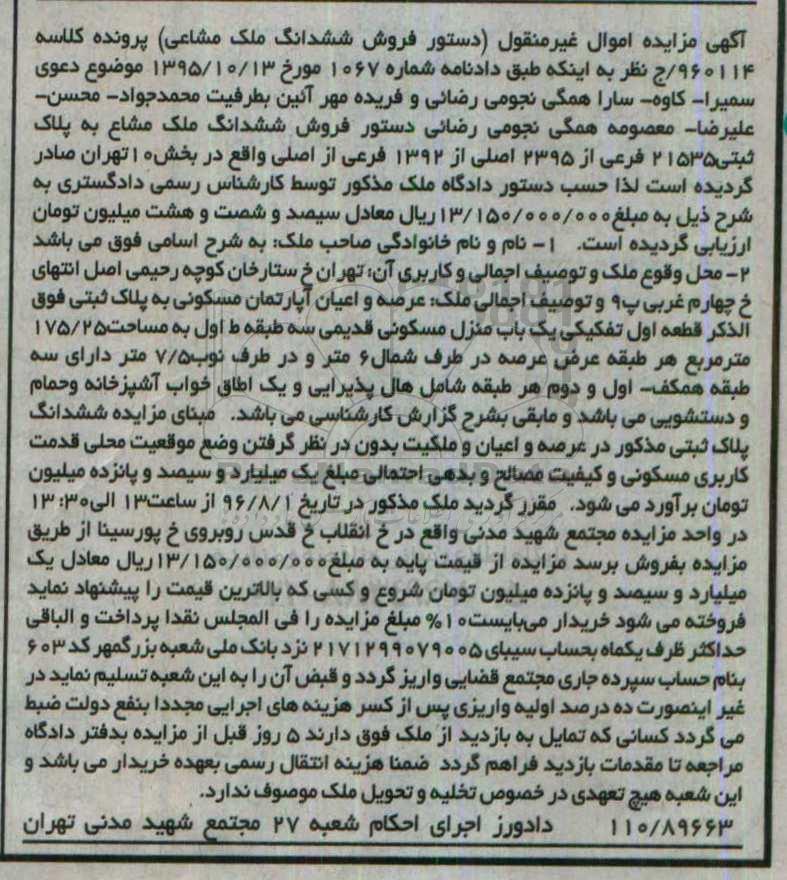 آگهی مزایده اموال غیرمنقول (دستور فروش ششدانگ ملک مشاعی) پرونده کلاسه
۹۶۰۱۱۴/ج نظر به اینکه طبق دادنامه شماره ۱۰۶۷ مورخ ۱۳۹۵/۱۰/۱۳ موضوع دعوی
سمیرا- کاوه- سارا همگی نجومی رضائی و فریده مهر آئین بطرفیت محمدجواد- محسن-
علیرضا- معصومه همگی نجومی رضائی دستور فروش ششدانگ ملک مشاع به پلاک
ثبتی۲۱۵۳۵ فرعی از ۲۳۹۵ اصلی از ۱۳۹۲ فرعی از اصلی واقع در بخش۱۰تهران صادر
گردیده است لذا حسب دستور دادگاه ملک مذکور توسط کارشناس رسمی دادگستری به
شرح ذیل به مبلغ۱۳/۱۵۰/۰۰۰/۰۰۰ریال معادل سیصد و شصت و هشت میلیون تومان
ارزیابی گردیده است. ۱- نام و نام خانوادگی صاحب ملک: به شرح اسامی فوق می باشد
۲- محل وقوع ملک و توصیف اجمالی و کاربری آن: تهران خ ستارخان کوچه رحیمی اصل انتهای
خ چهارم غربی پ۹ و توصیف اجمالی ملک: عرصه و اعیان آپارتمان مسکونی به پلاک ثبتی فوق
الذکر قطعه اول تفکیکی یک باب منزل مسکونی قدیمی سه طبقه ط اول به مساحت۱۷۵/۲۵
مترمربع هر طبقه عرض عرصه در طرف شمال۶ متر و در طرف نوب۷/۵ متر دارای سه
طبقه همکف- اول و دوم هر طبقه شامل هال پذیرایی و یک اطاق خواب آشپزخانه وحمام
و دستشویی می باشد و مابقی بشرح گزارش کارشناسی می باشد. مبنای مزایده ششدانگ
پلاک ثبتی مذکور در عرصه و اعیان و ملکیت بدون در نظر گرفتن وضع موقعیت محلی قدمت
کاربری مسکونی و کیفیت مصالح و بدهی احتمالی مبلغ یک میلیارد و سیصد و پانزده میلیون
تومان برآورد می شود. مقرر گردید ملک مذکور در تاریخ ۹۶/۸/۱ از ساعت۱۳ الی۱۳:۳۰
در واحد مزایده مجتمع شهید مدنی واقع در خ انقلاب خ قدس روبروی خ پورسینا از طریق
مزایده بفروش برسد مزایده از قیمت پایه به مبلغ۱۳/۱۵۰/۰۰۰/۰۰۰ریال معادل یک
میلیارد و سیصد و پانزده میلیون تومان شروع و کسی که بالاترین قیمت را پیشنهاد نماید
فروخته می شود خریدار می‌بایست۱۰% مبلغ مزایده را فی المجلس نقدا پرداخت و الباقی
حداکثر ظرف یکماه بحساب سیبای۲۱۷۱۲۹۹۰۷۹۰۰۵ نزد بانک ملی شعبه بزرگمهر کد ۶۰۳
بنام حساب سپرده جاری مجتمع قضایی واریز گردد و قبض آن را به این شعبه تسلیم نماید در
غیر اینصورت ده درصد اولیه واریزی پس از کسر هزینه های اجرایی مجددا بنفع دولت ضبط
می گردد کسانی که تمایل به بازدید از ملک فوق دارند ۵ روز قبل از مزایده بدفتر دادگاه
مراجعه تا مقدمات بازدید فراهم گردد ضمنا هزینه انتقال رسمی بعهده خریدار می باشد و
این شعبه هیچ تعهدی در خصوص تخلیه و تحویل ملک موصوف ندارد.
۱۱۰/۸۹۶۶۳ دادورز اجرای احکام شعبه ۲۷ مجتمع شهید مدنی تهران